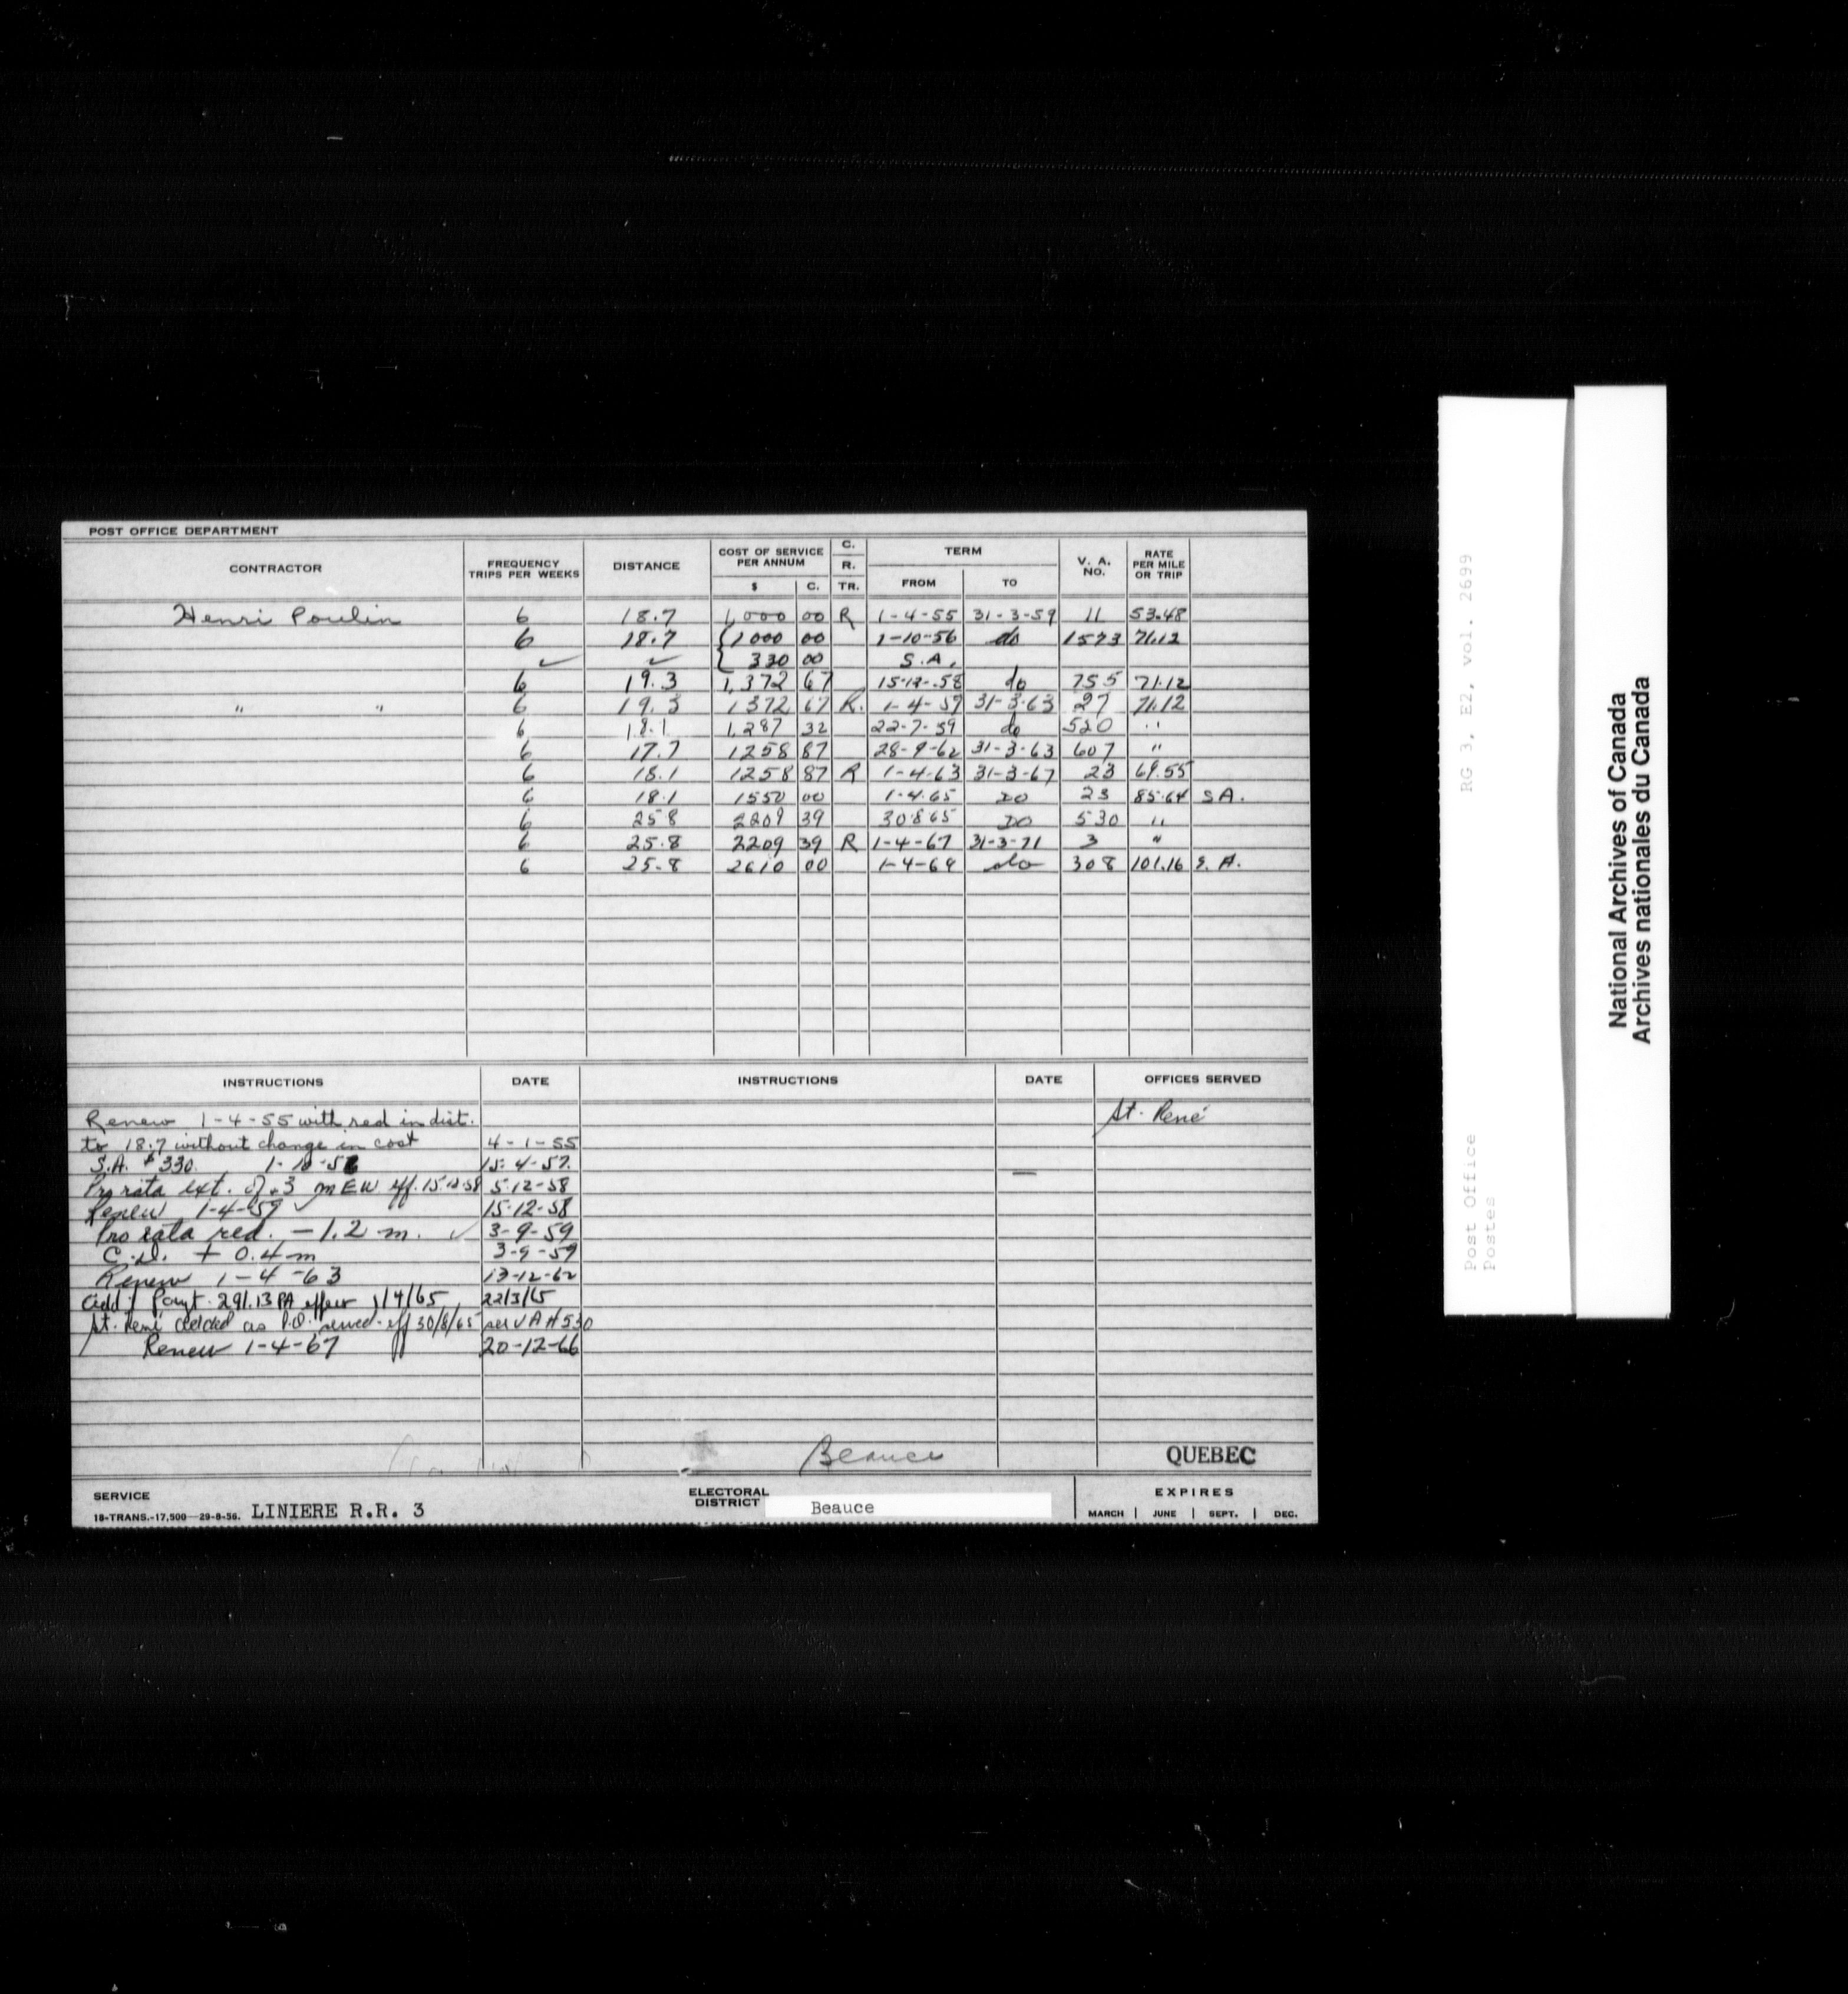 POST OFFICE DEPARTMENT
CONTRACTOR FREQUENCY TRIPS PER WEEKS DISTANCE COST OF SERVICE PER ANNUM $ C. C. R. TR. TERM FROM TO V. A. NO. RATE PER MILE OR TRIP
Henri Poulin 6 18.7 1,000 00 R 1-4-55 31-3-59 11 53.48
6 18.7 1000 00 1-10-56 do 1573 71.12
✓ ✓ 330 00 S.A.
6 19.3 1,372 67 15-12-58 do 755 71.12
" " 6 19.3 1372 67 R. 1-4-59 31-3-63 27 71.12
6 18.1 1,287 32 22-7-59 do 520 "
6 17.7 1258 87 28-9-62 31-3-63 607 "
6 18.1 1258 87 R 1-4-63 31-3-67 23 69.55
6 18.1 1550 00 1-4-65 DO 23 85.64 SA.
6 25 8 2209 39 30 8 65 DO 530 "
6 25.8 2209 39 R 1-4-67 31-3-71 3 "
6 25.8 2610 00 1-4-69 do 308 101.16 S.A.
INSTRUCTIONS DATE INSTRUCTIONS DATE OFFICES SERVED
Renew 1-4-55 with red in dist. St. René
to 18.7 without change in cost 4-1-55
S.A. $330. 15-4-57.
Pro rata ext. of .3 m EW eff. 15-12-58 5-12-58
Renew 1-4-59 ✓ 15-12-58
Pro rata red. - 1.2 m. ✓ 3-9-59
C.D. + 0.4 m 3-9-59
Renew 1-4-63 13-12-62
Add'l Paymt. 291.13 PA 1/4/65 22/3/65
St. René added as P.O. served eff 30/8/65 per VA # 530
Renew 1-4-67 20-12-66
Beauce
QUEBEC
SERVICE
18-TRANS.-17,500—29-8-56. LINIERE R.R. 3
ELECTORAL DISTRICT Beauce
EXPIRES
MARCH | JUNE | SEPT. | DEC.
RG 3, E2, vol. 2699
Post Office
Postes
National Archives of Canada
Archives nationales du Canada